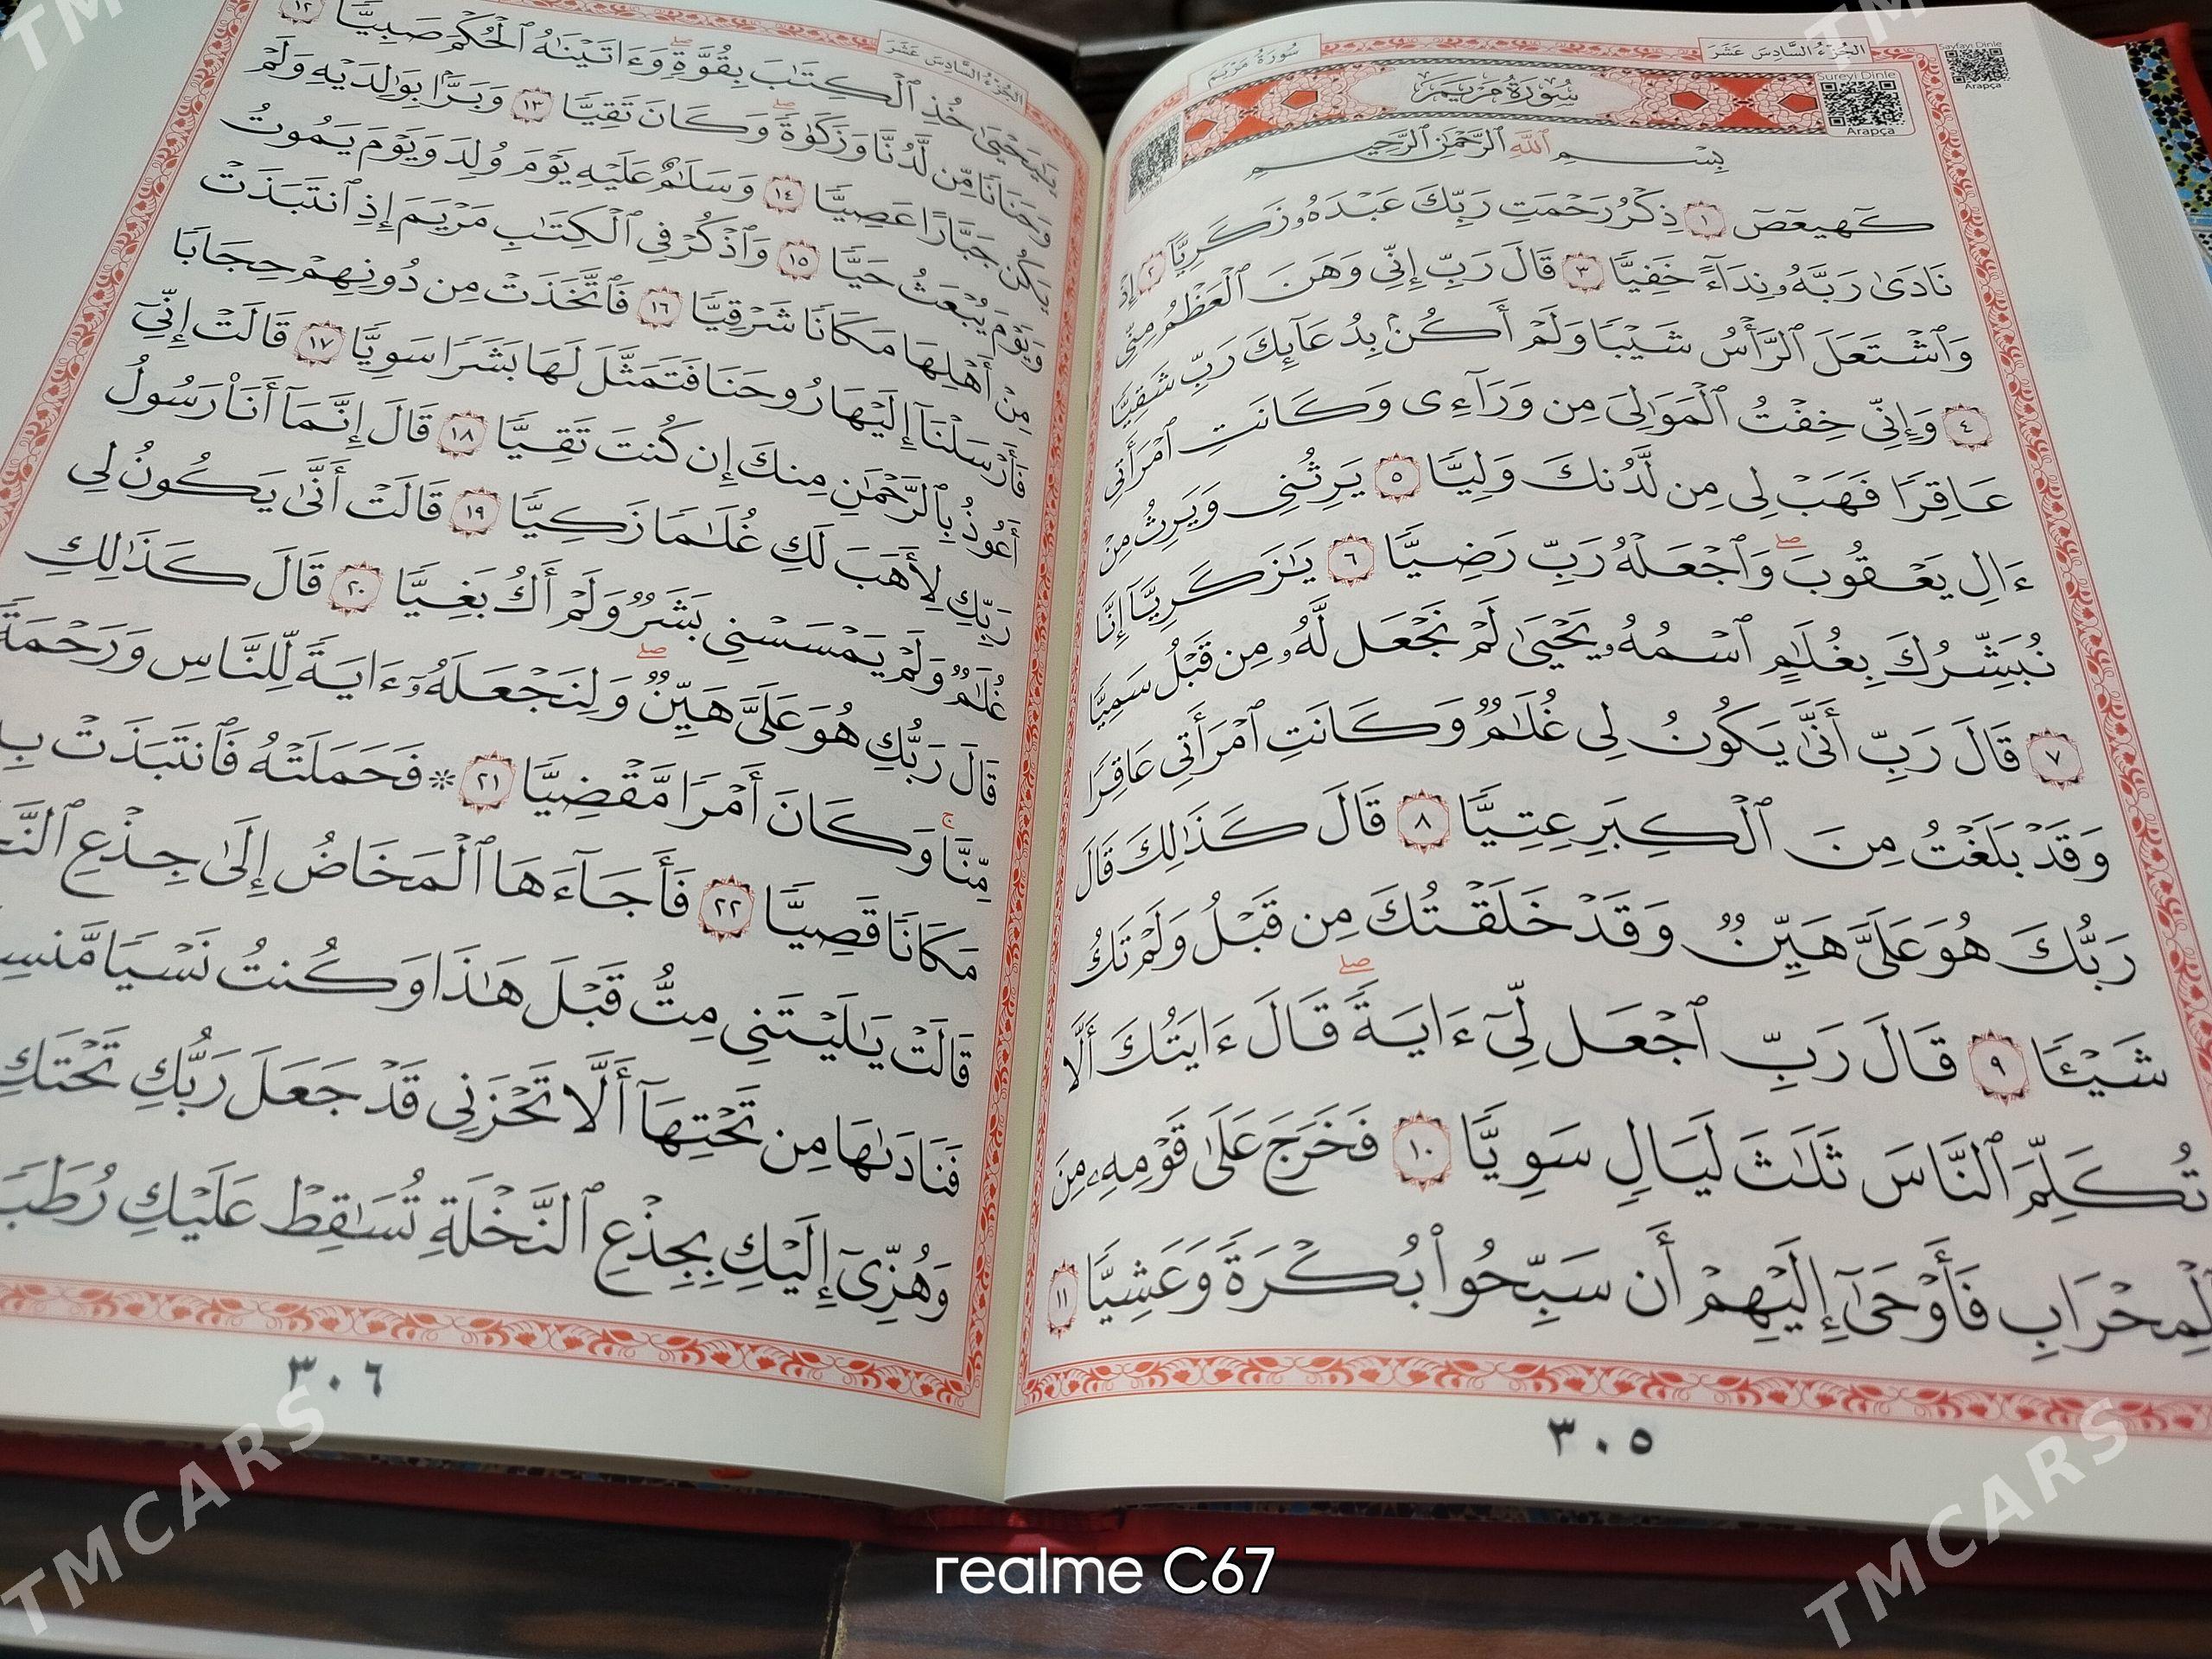 الجُزْءُ السَّادِسَ عَشَرَ
سُورَةُ مَرْيَمَ
Sayfayı Dinle
Arapça
Sureyi Dinle
Arapça
سُورَةُ مَرْيَمَ
بِسْمِ ٱللَّهِ ٱلرَّحْمَٰنِ ٱلرَّحِيمِ
كٓهيعٓصٓ ١ ذِكْرُ رَحْمَتِ رَبِّكَ عَبْدَهُۥ زَكَرِيَّآ ٢ إِذْ
نَادَىٰ رَبَّهُۥ نِدَآءً خَفِيًّا ٣ قَالَ رَبِّ إِنِّى وَهَنَ ٱلْعَظْمُ مِنِّى
وَٱشْتَعَلَ ٱلرَّأْسُ شَيْبًا وَلَمْ أَكُنۢ بِدُعَآئِكَ رَبِّ شَقِيًّا
٤ وَإِنِّى خِفْتُ ٱلْمَوَٰلِىَ مِن وَرَآءِى وَكَانَتِ ٱمْرَأَتِى
عَاقِرًا فَهَبْ لِى مِن لَّدُنكَ وَلِيًّا ٥ يَرِثُنِى وَيَرِثُ مِنْ
ءَالِ يَعْقُوبَ ۖ وَٱجْعَلْهُ رَبِّ رَضِيًّا ٦ يَٰزَكَرِيَّآ إِنَّا
نُبَشِّرُكَ بِغُلَٰمٍ ٱسْمُهُۥ يَحْيَىٰ لَمْ نَجْعَل لَّهُۥ مِن قَبْلُ سَمِيًّا
٧ قَالَ رَبِّ أَنَّىٰ يَكُونُ لِى غُلَٰمٌ وَكَانَتِ ٱمْرَأَتِى عَاقِرًا
وَقَدْ بَلَغْتُ مِنَ ٱلْكِبَرِ عِتِيًّا ٨ قَالَ كَذَٰلِكَ قَالَ
رَبُّكَ هُوَ عَلَىَّ هَيِّنٌ وَقَدْ خَلَقْتُكَ مِن قَبْلُ وَلَمْ تَكُ
شَيْـًٔا ٩ قَالَ رَبِّ ٱجْعَل لِّىٓ ءَايَةً ۖ قَالَ ءَايَتُكَ أَلَّا
تُكَلِّمَ ٱلنَّاسَ ثَلَٰثَ لَيَالٍ سَوِيًّا ١٠ فَخَرَجَ عَلَىٰ قَوْمِهِۦ مِنَ
ٱلْمِحْرَابِ فَأَوْحَىٰٓ إِلَيْهِمْ أَن سَبِّحُوا۟ بُكْرَةً وَعَشِيًّا ١١
٣٠٥
الجُزْءُ السَّادِسَ عَشَرَ
يَٰيَحْيَىٰ خُذِ ٱلْكِتَٰبَ بِقُوَّةٍ ۖ وَءَاتَيْنَٰهُ ٱلْحُكْمَ صَبِيًّا ١٢
وَحَنَانًا مِّن لَّدُنَّا وَزَكَوٰةً ۖ وَكَانَ تَقِيًّا ١٣ وَبَرًّۢا بِوَٰلِدَيْهِ وَلَمْ
يَكُن جَبَّارًا عَصِيًّا ١٤ وَسَلَٰمٌ عَلَيْهِ يَوْمَ وُلِدَ وَيَوْمَ يَمُوتُ
وَيَوْمَ يُبْعَثُ حَيًّا ١٥ وَٱذْكُرْ فِى ٱلْكِتَٰبِ مَرْيَمَ إِذِ ٱنتَبَذَتْ
مِنْ أَهْلِهَا مَكَانًا شَرْقِيًّا ١٦ فَٱتَّخَذَتْ مِن دُونِهِمْ حِجَابًا
فَأَرْسَلْنَآ إِلَيْهَا رُوحَنَا فَتَمَثَّلَ لَهَا بَشَرًا سَوِيًّا ١٧ قَالَتْ إِنِّىٓ
أَعُوذُ بِٱلرَّحْمَٰنِ مِنكَ إِن كُنتَ تَقِيًّا ١٨ قَالَ إِنَّمَآ أَنَا۠ رَسُولُ
رَبِّكِ لِأَهَبَ لَكِ غُلَٰمًا زَكِيًّا ١٩ قَالَتْ أَنَّىٰ يَكُونُ لِى
غُلَٰمٌ وَلَمْ يَمْسَسْنِى بَشَرٌ وَلَمْ أَكُ بَغِيًّا ٢٠ قَالَ كَذَٰلِكِ
قَالَ رَبُّكِ هُوَ عَلَىَّ هَيِّنٌ ۖ وَلِنَجْعَلَهُۥٓ ءَايَةً لِّلنَّاسِ وَرَحْمَةً
مِّنَّا ۚ وَكَانَ أَمْرًا مَّقْضِيًّا ٢١ * فَحَمَلَتْهُ فَٱنتَبَذَتْ
مَكَانًا قَصِيًّا ٢٢ فَأَجَآءَهَا ٱلْمَخَاضُ إِلَىٰ جِذْعِ
قَالَتْ يَٰلَيْتَنِى مِتُّ قَبْلَ هَٰذَا وَكُنتُ نَسْيًا
فَنَادَىٰهَا مِن تَحْتِهَآ أَلَّا تَحْزَنِى قَدْ جَعَلَ رَبُّكِ تَحْتَكِ
وَهُزِّىٓ إِلَيْكِ بِجِذْعِ ٱلنَّخْلَةِ تُسَٰقِطْ عَلَيْكِ
٣٠٦
realme C67
TMCARS
TMCARS